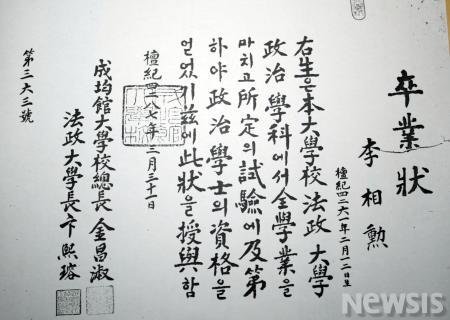 卒業狀
李相勳
檀紀四二六一年二月一二日生
右生은本大學校法政大學
政治學科에서全學業을
마치고所定의試驗에及第
하야政治學士의資格을
얻었기玆에此狀을授與함
檀紀四二八七年三月三十一日
成均館大學校總長 金昌淑
法政大學長 卞熙瑢
第三六三號
NEWSIS